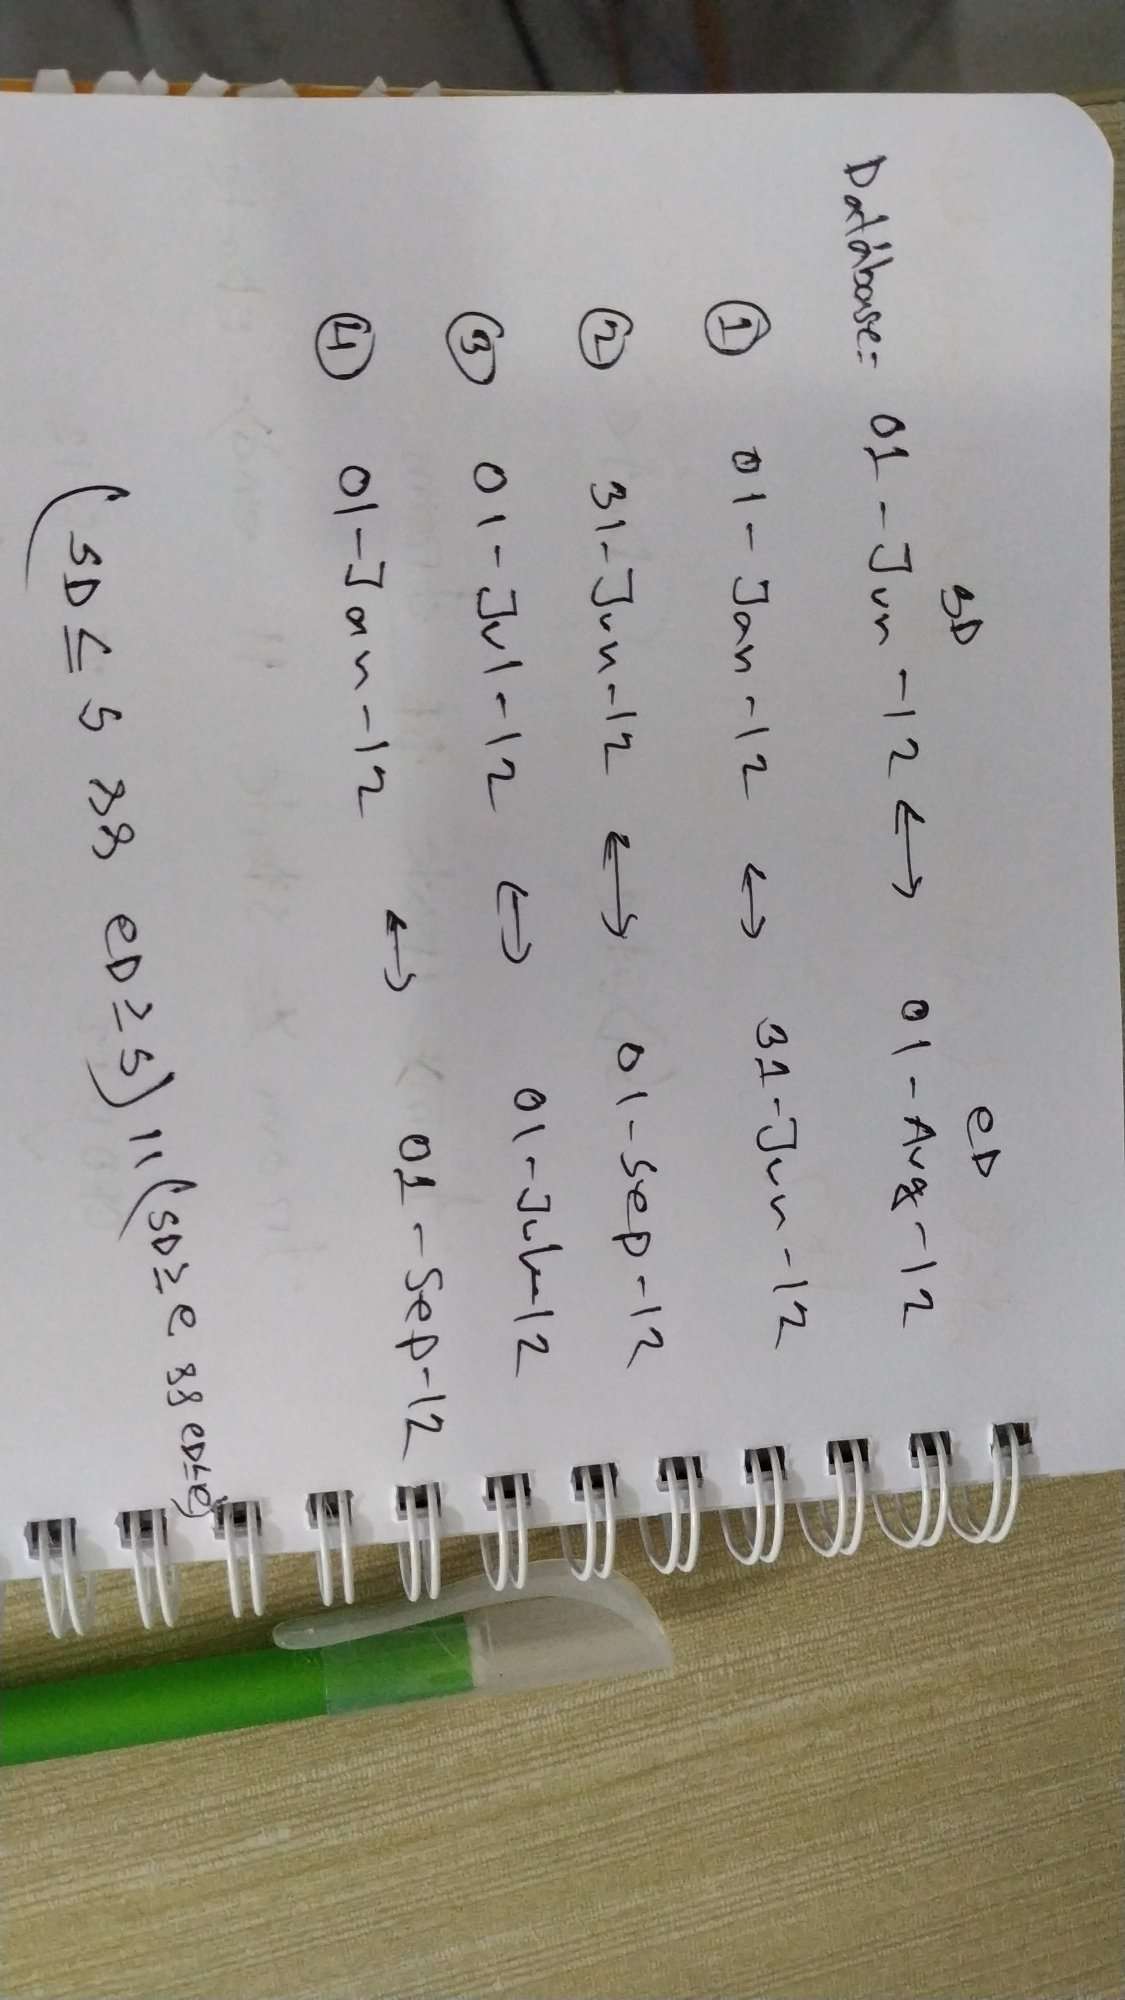 SD eD
Database= 01-Jun-12 ↔ 01-Aug-12
① 01-Jan-12 ↔ 31-Jun-12
② 31-Jun-12 ↔ 01-Sep-12
③ 01-Jul-12 ↔ 01-Jul-12
④ 01-Jan-12 ↔ 01-Sep-12
(SD ≤ S && eD ≥ S) || (SD ≥ e && eD ≤ e)